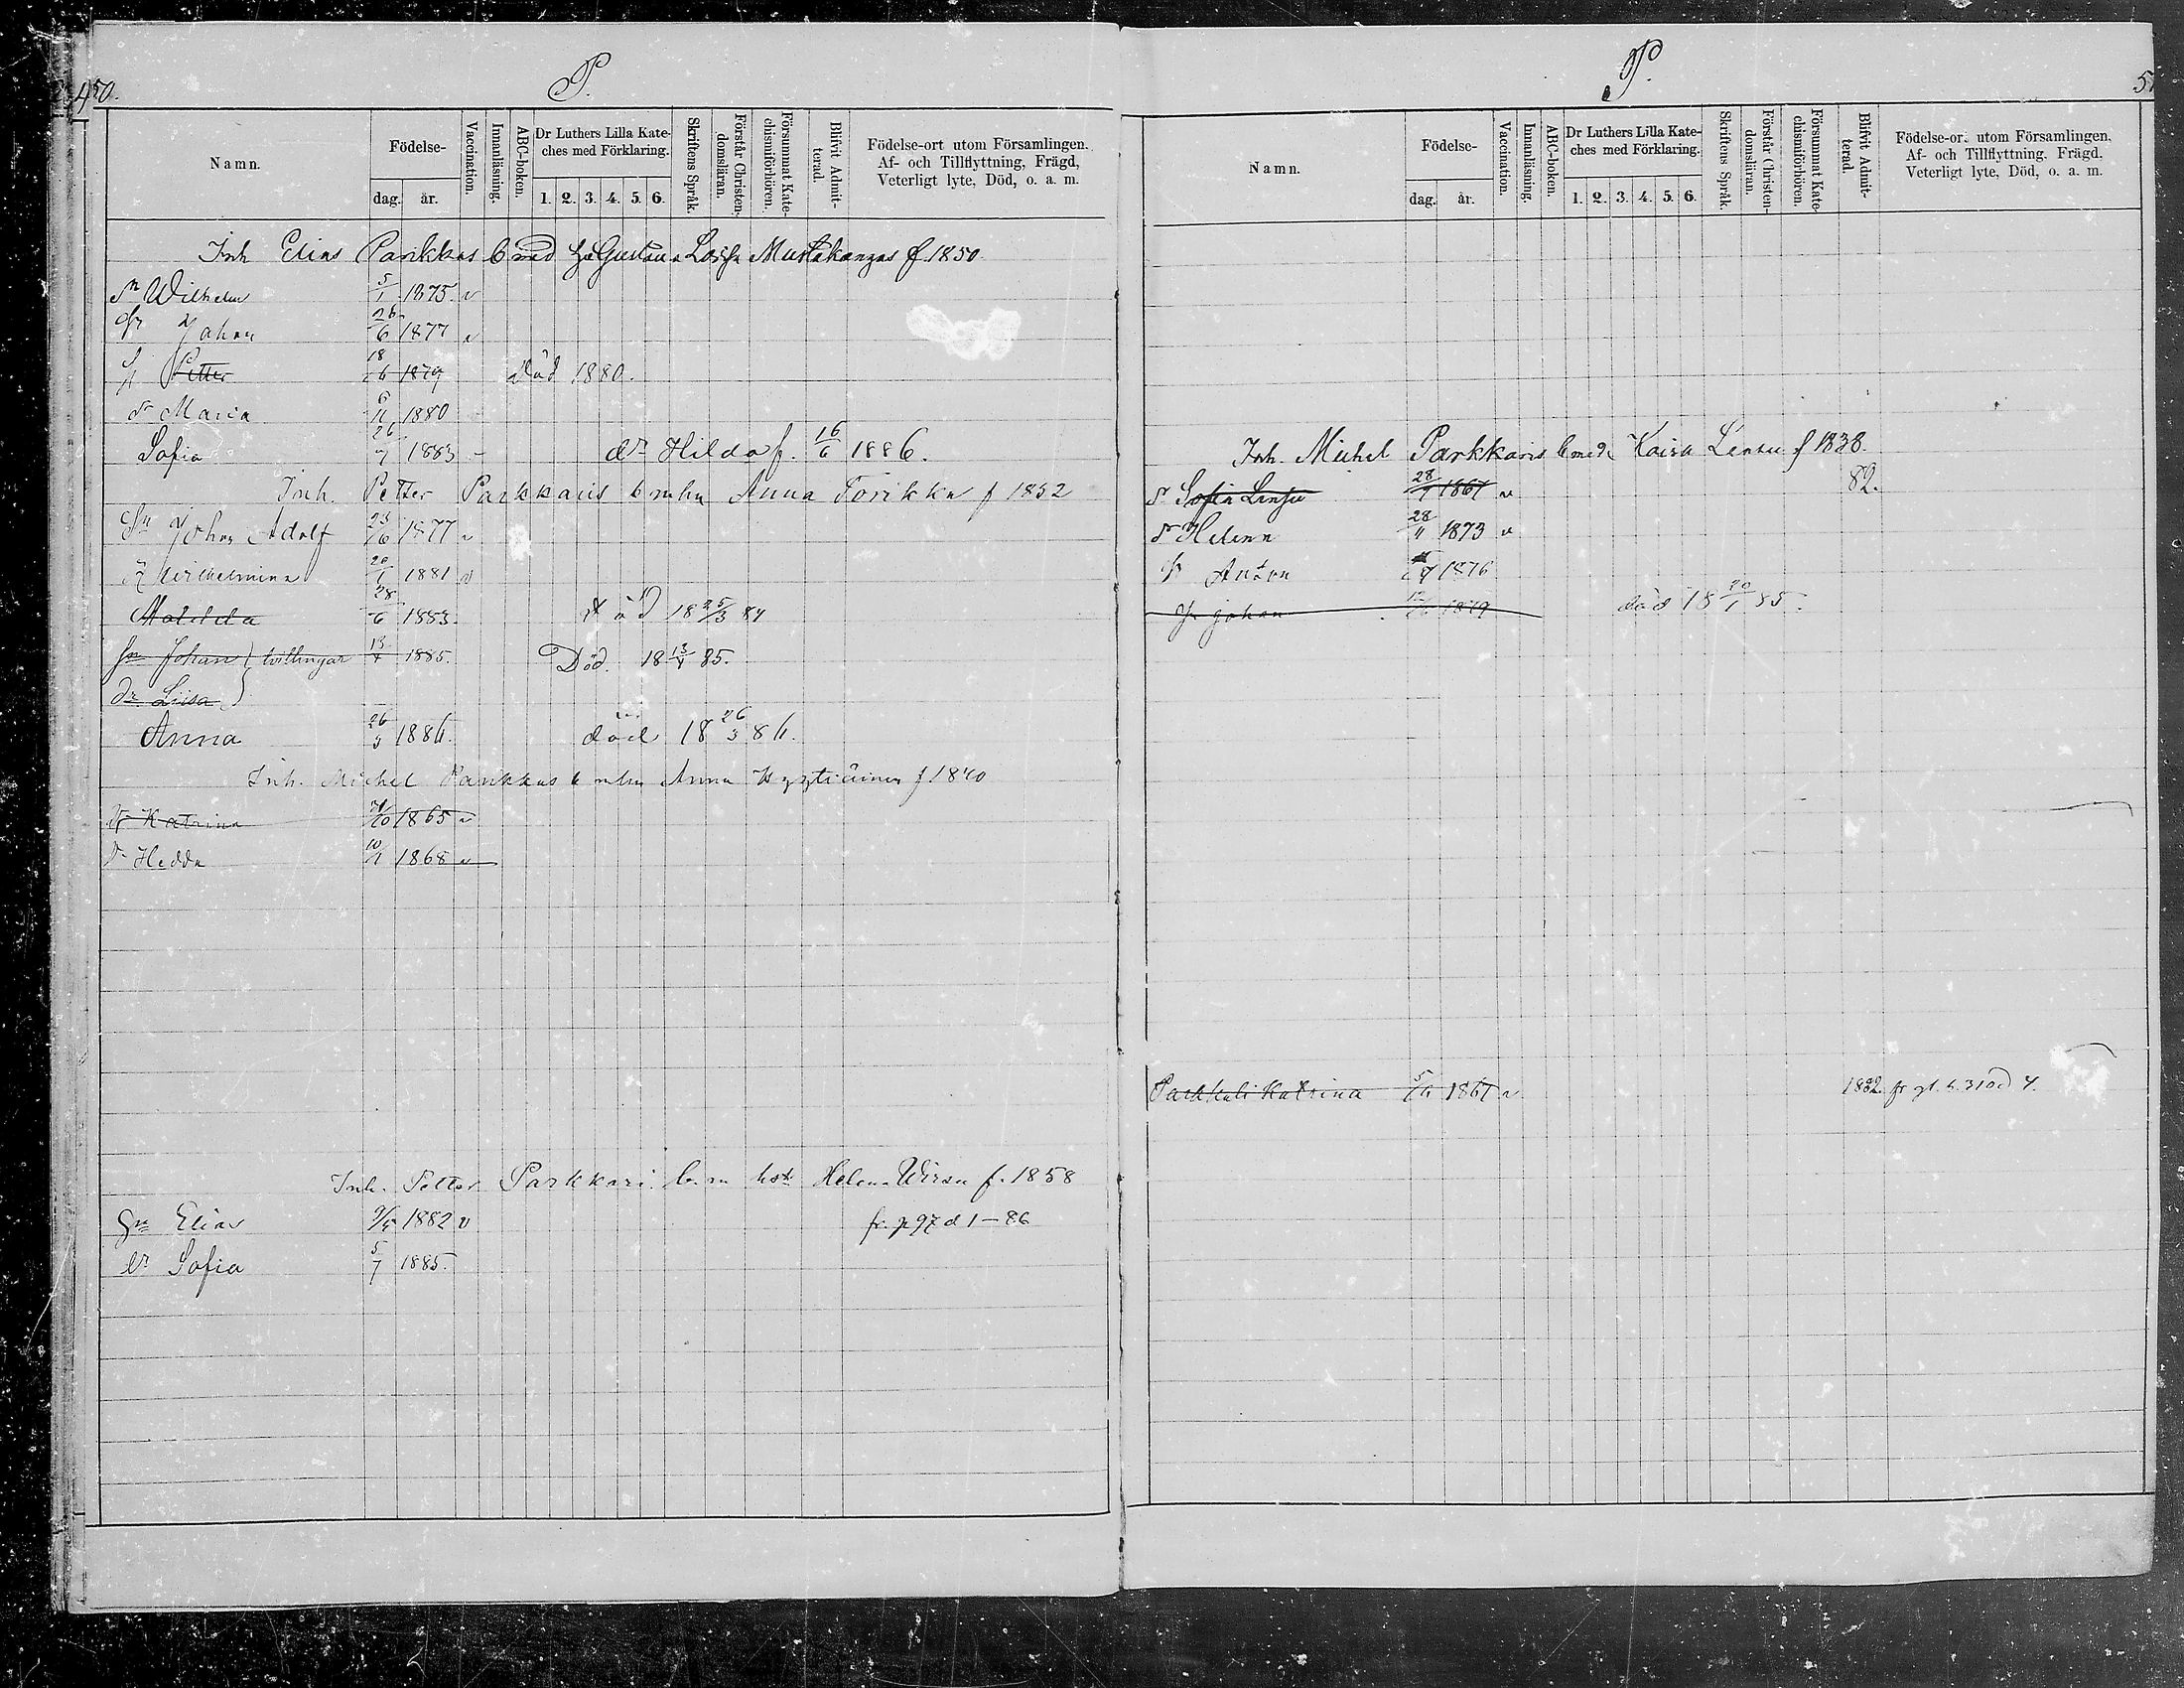 50.
P.
Namn.
Födelse-
dag.
år.
Vaccination.
Innanläsning.
ABC-boken.
Dr Luthers Lilla Kate-
ches med Förklaring.
1. 2. 3. 4. 5. 6.
Skriftens Språk.
Förstår Christen-
domsläran.
Försummat Kate-
chismiförhören.
Blifvit Admit-
terad.
Födelse-ort utom Församlingen.
Af- och Tillflyttning, Frägd,
Veterligt lyte, Död, o. a. m.
Inh Elias Parikkas b med Gustava Mustakangas f. 1850
Sn Wilhelm 5/1 1875. v
Johan 26/6 1877 v
Petter 18/6 1879 Död 1880.
dr Maria 6/11 1880
Sofia 26/7 1883 - dr Hilda f. 16/6 1886.
Inh. Petter Parkkaris b m hu Anna Torikka f 1852
Sn Johan Adolf 1877 v
Wilhelmina 20/1 1881 v
Matilda 28/6 1883. Död 18 25/3 84
Sn Johan } tvillingar 13/4 1885. Död. 18 13/4 85.
dr Liisa }
Anna 26/3 1886. död 18 26/3 86.
Inh. Michel Parikkas b m hu Anna f 1840
dr Katrina 1865 v
dr Hedda 10/1 1868 v
Inh. Petter Parkkari b. m hst Helena Wirsu f. 1858
Sn Elias 9/5 1882 v fr. p 97 d 1-86
dr Sofia 5/7 1885.
P.
51
Namn.
Födelse-
dag.
år.
Vaccination.
Innanläsning.
ABC-boken.
Dr Luthers Lilla Kate-
ches med Förklaring.
1. 2. 3. 4. 5. 6.
Skriftens Språk.
Förstår Christen-
domsläran.
Försummat Kate-
chismiförhören.
Blifvit Admit-
terad.
Födelse-ort utom Församlingen.
Af- och Tillflyttning. Frägd.
Veterligt lyte, Död, o. a. m.
Inh. Michel Parkkaris b med Kaisa Lensu f 1838.
d Sofia Lensu 28/7 1867 v 82.
dr Helena 28/11 1873 v
Anton 1876
Johan 1879 död 18 20/1 85.
Parkkali Katrina 1867 v 1882. fr gl. b. 310 d 4.